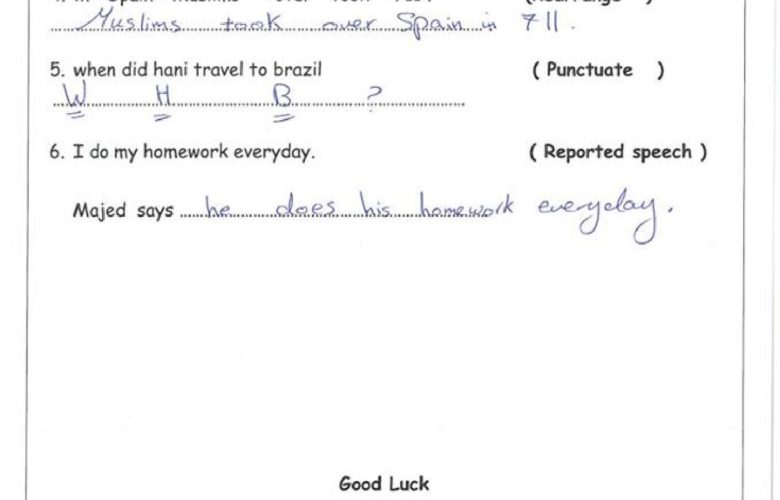 Muslims took over Spain in 711.
5. when did hani travel to brazil ( Punctuate )
W H B ?
6. I do my homework everyday. ( Reported speech )
Majed says he does his homework everyday.
Good Luck